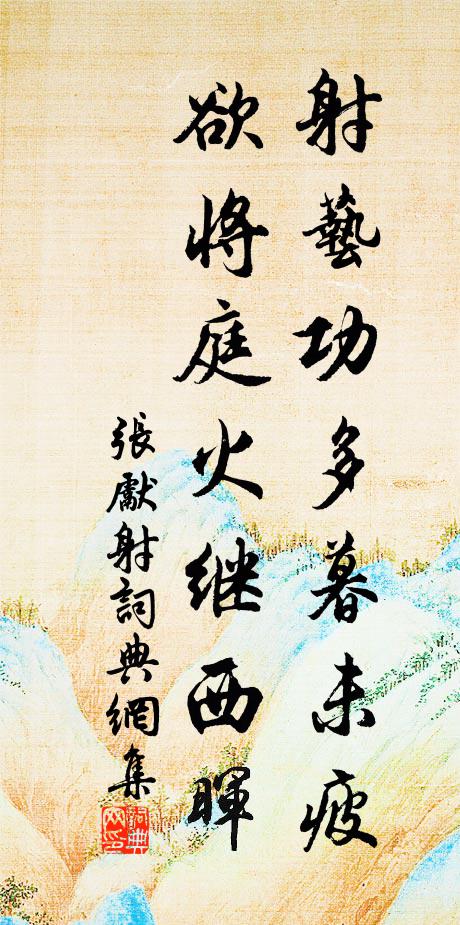 射藝功多暮未疲
欲將庭火继西暉
張獻射詞典網集
詞典
网印